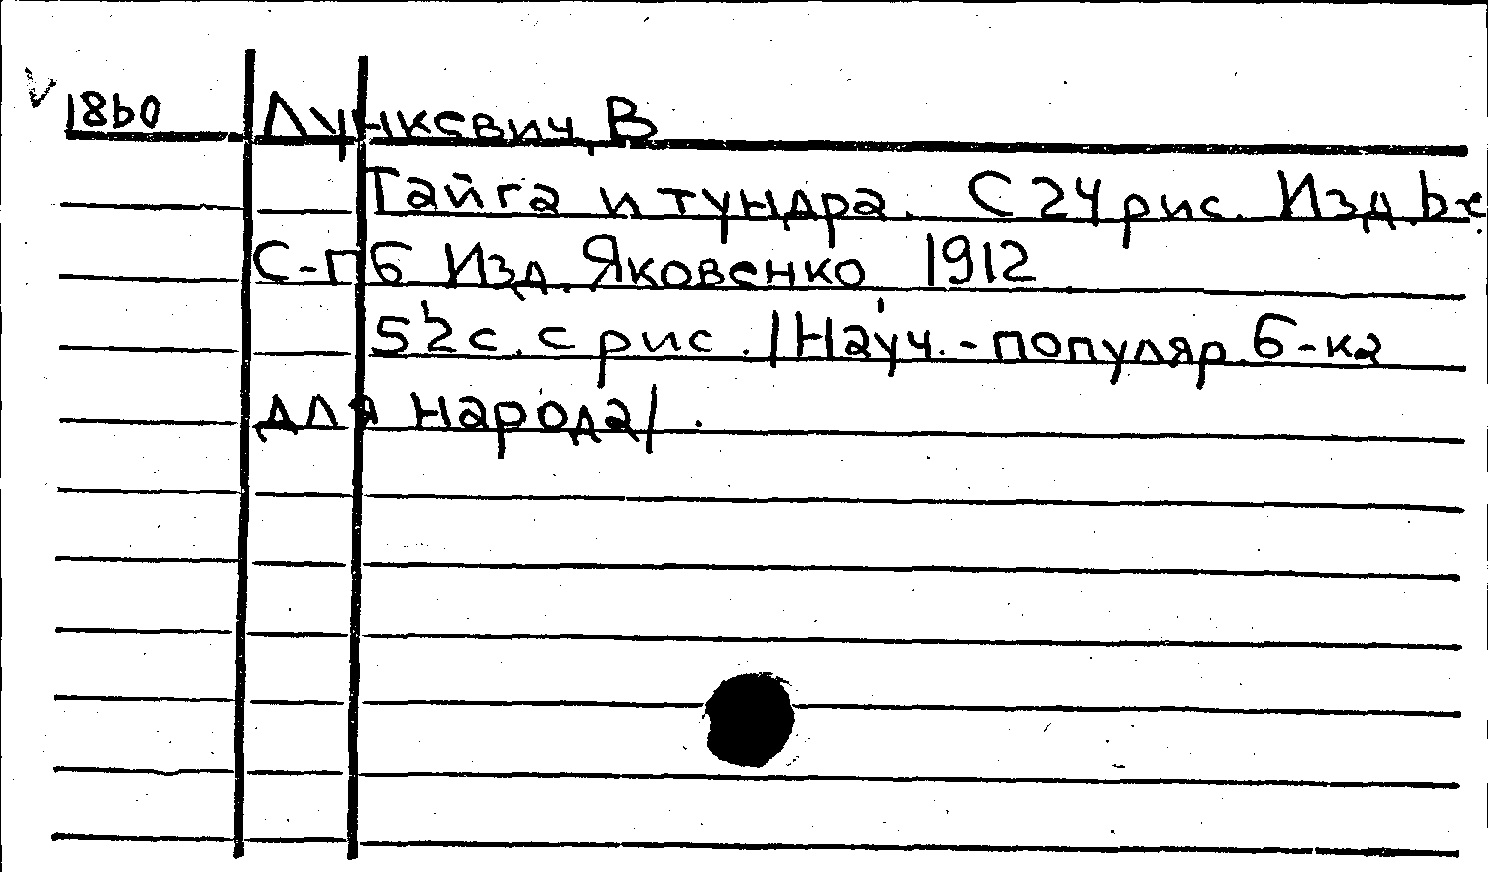 1860 Лункевич, В
Тайга и тундра. С 24 рис. Изд. 6-е.
С-ПБ Изд. Яковенко 1912
52с. с рис. /Науч.-популяр. б-ка
для народа/.